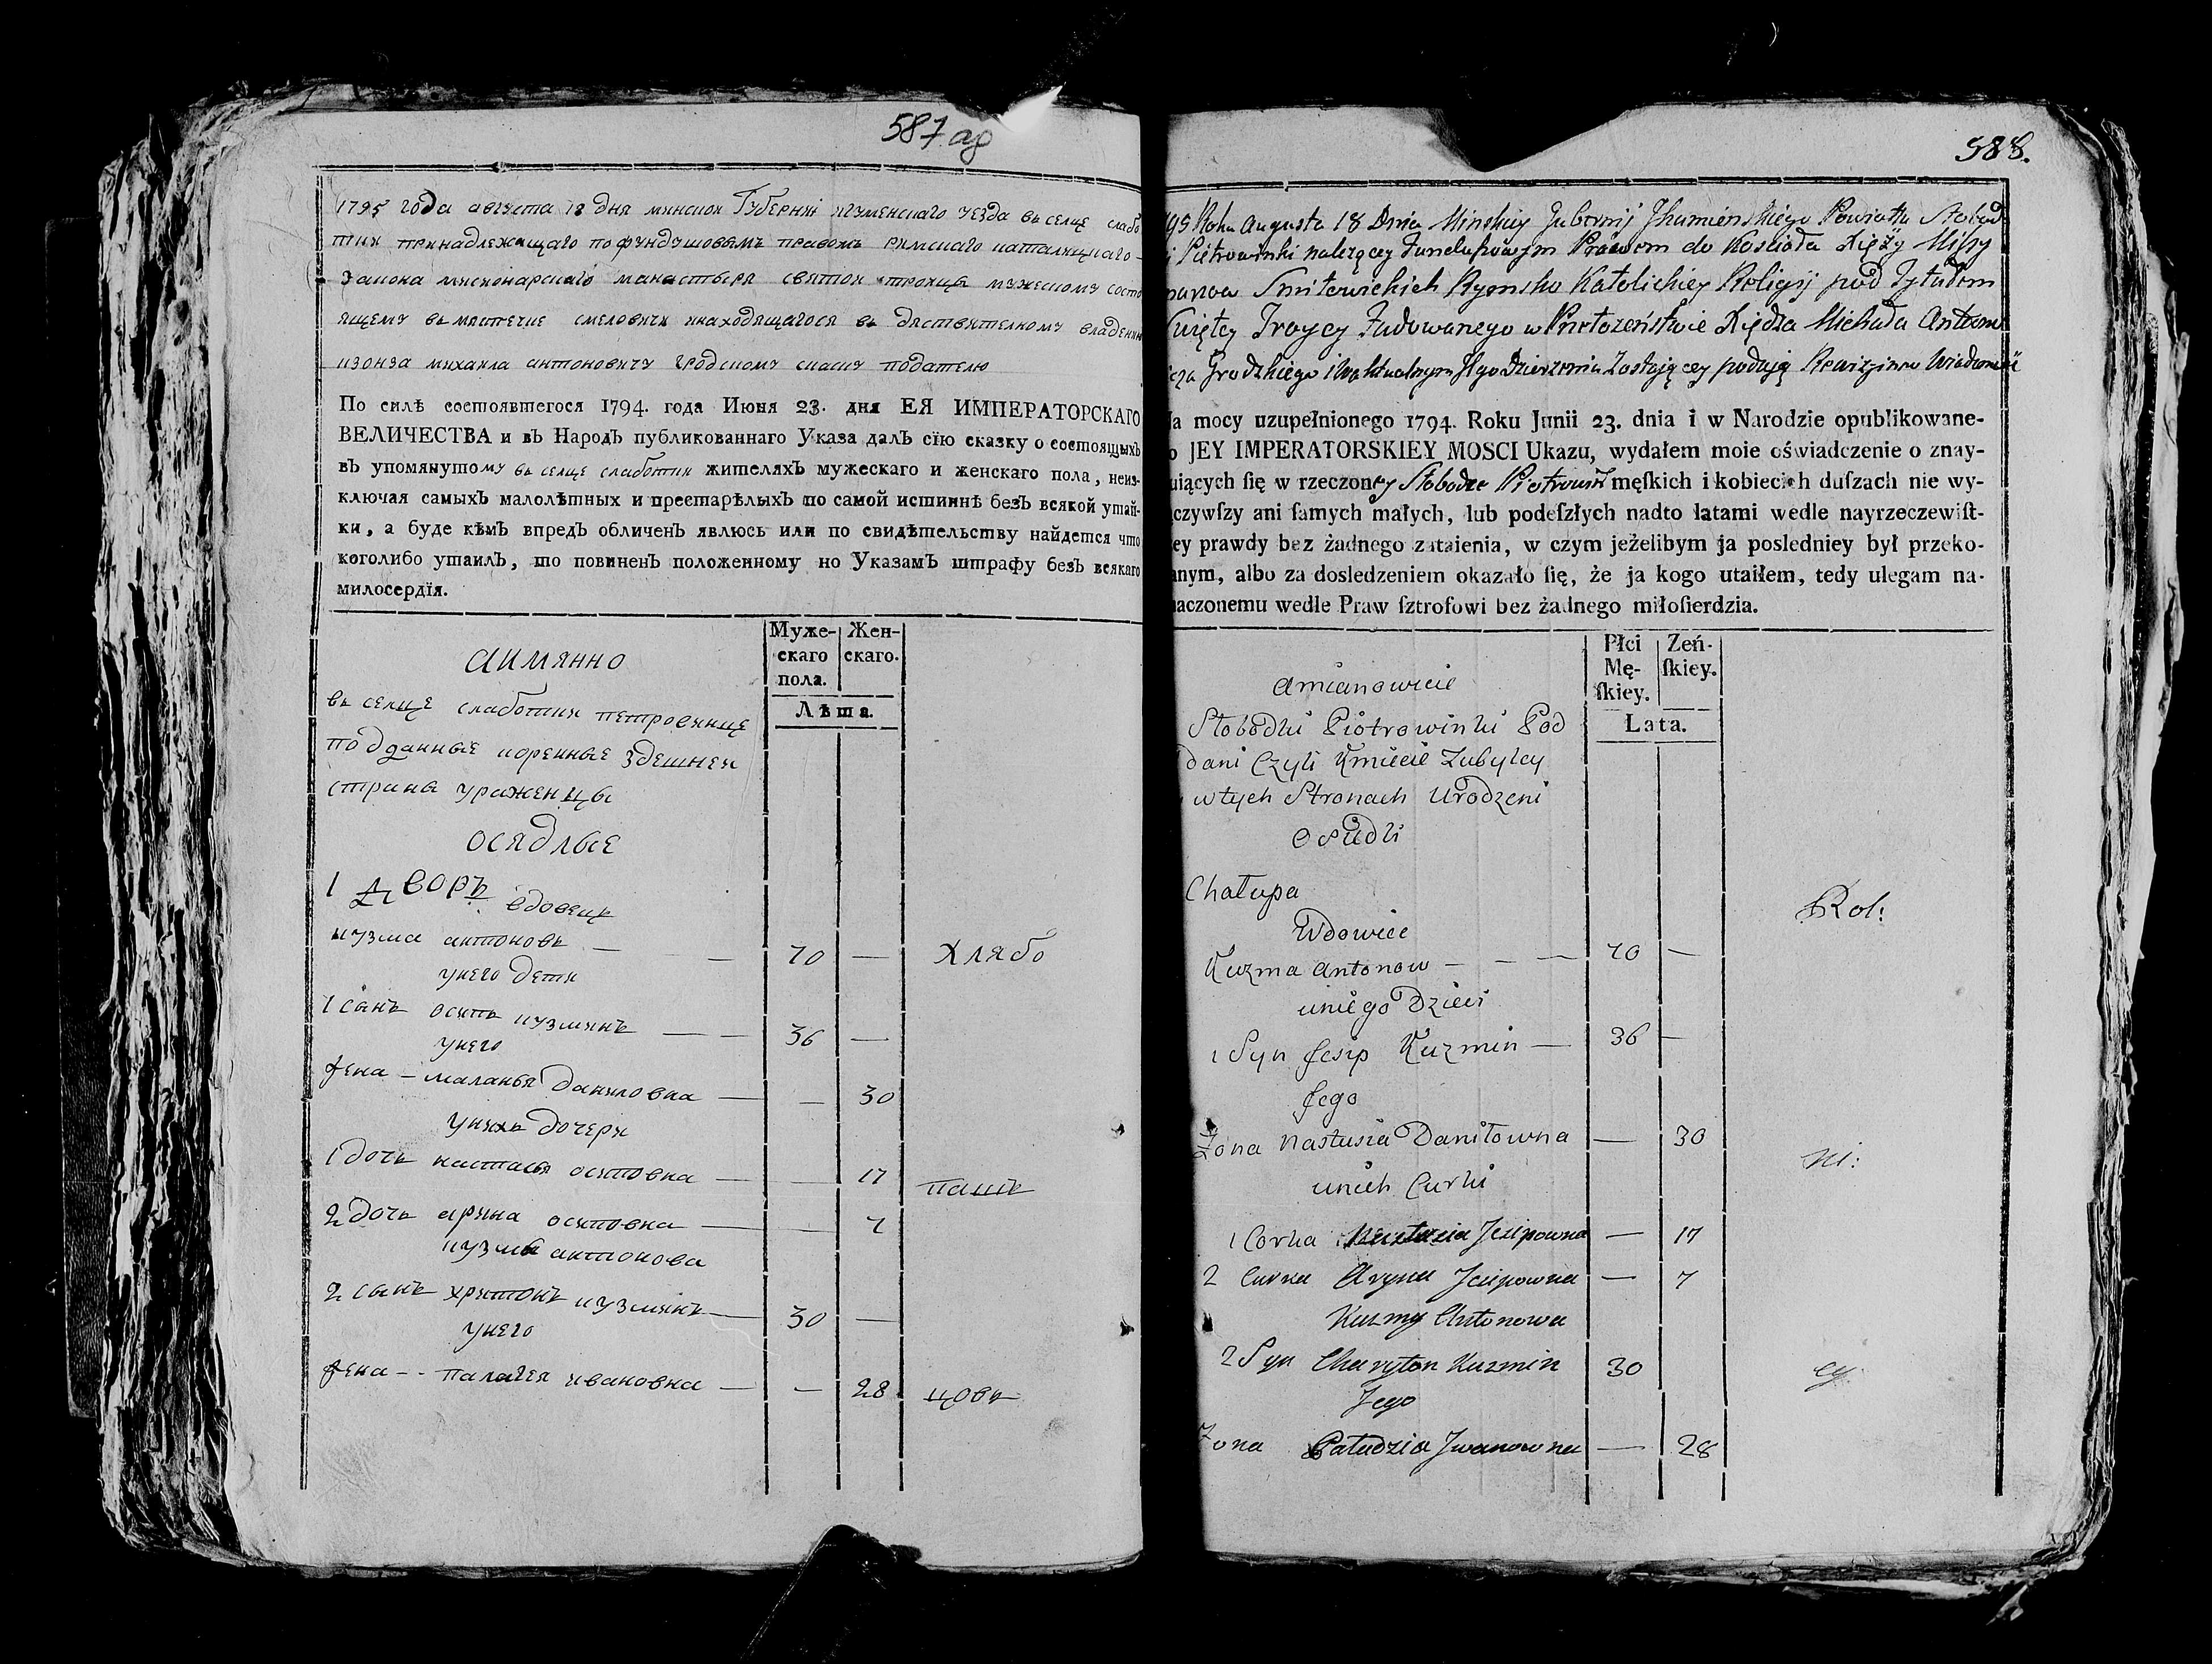 587 об
1795 года августа 18 дня минской Губернии игуменского уезда въ селце слабо
тки принадлежащаго по фундушовымъ правомъ римскаго католицкаго
закона мисионарскаго манастыря святой троицы мужескому состо
ящему въ мястечке смеловичи инаходящагося въ действителному владении
изонза михаила антоновичу гродскому подателю
По силѣ состоявшегося 1794. года Июня 23. дня ЕЯ ИМПЕРАТОРСКАГО
ВЕЛИЧЕСТВА и въ Народъ публикованнаго Указа далъ сїю сказку о состоящыхъ
въ упомянутому въ селце слаботки жителяхъ мужескаго и женскаго пола, неиз-
ключая самыхъ малолѣтныхъ и престарѣлыхъ по самой истиннѣ безъ всякой утай-
ки, а буде кѣмъ впредъ обличенъ явлюсь или по свидѣтельству найдется что
коголибо утаилъ, то повиненъ положенному но Указамъ штрафу безъ всякаго
милосердїя.
Муже-скаго пола. Жен-скаго.
Лѣта.
аимянно
въ селце слаботки петровинце
подданные коренные здешней
страны уроженцы
осядлые
1 дворъ вдовецъ
кузма антоновъ — — 70 — хлябо
унего дети
1 сынъ осипъ кузминъ — — 36 —
унего
жена — маланья даниловна — — 30
унихъ дочери
1 дочь настасья осиповна — — 17 пашъ
2 дочь арина осиповна — — 7
кузмы антонова
2 сынъ харитонъ кузминъ — 30 —
унего
жена - - палагея ивановна — — 28 цовъ
588.
95 Roku Augusta 18 Dnia Minskiey Gubernij Jhumienskiego Powiatu Słobod
i Piotrowinki należącey Funduszowym Prawem do Kościoła Xięży Missy
onarow Smiłowickich Rymsko Katolickiey Religij pod Tytułem
Swiętey Troycy Fudowanego w Przełożeństwie Xiędza Michała Antono
icza Grodzkiego i Waktualnym Jego Dzierzeniu Zostającey podają Rewizinno Wiadomość
Na mocy uzupełnionego 1794. Roku Junii 23. dnia i w Narodzie opublikowane-
o JEY IMPERATORSKIEY MOSCI Ukazu, wydałem moie oświadczenie o znay-
uiących ſię w rzeczoney Słobodce Piotrowink męſkich i kobiecich duſzach nie wy-
ączywſzy ani ſamych małych, lub podeſzłych nadto latami wedle nayrzeczewiſt-
ey prawdy bez żadnego zataienia, w czym jeżelibym ja posledniey był przeko-
anym, albo za dosledzeniem okazało ſię, że ja kogo utaiłem, tedy ulegam na-
naczonemu wedle Praw ſztrofowi bez żadnego miłoſierdzia.
Płci Mę-ſkiey. Zeń-ſkiey.
Lata.
amianowicie
Słobodki Piotrowinki Pod
dani Czyli Kmiecie Zubylcy
wtych Stronach Urodzeni
Osiedli
Chałupa Rol:
Wdowiec
Kuzma Antonow — — — 70 —
uniego Dzieci
1 Syn Jesip Kuzmin — 36 —
Jego
Żona Nastusia Daniłowna — 30
unich Curki ni:
1 Corka Nastazia Jesipowna — 17
2 Curka Aryna Jesipowna — 7
Kuzmy Antonowa
2 Syn Charyton Kuzmin 30 cy
Jego
Zona Pałudzia Jwanowna — 28